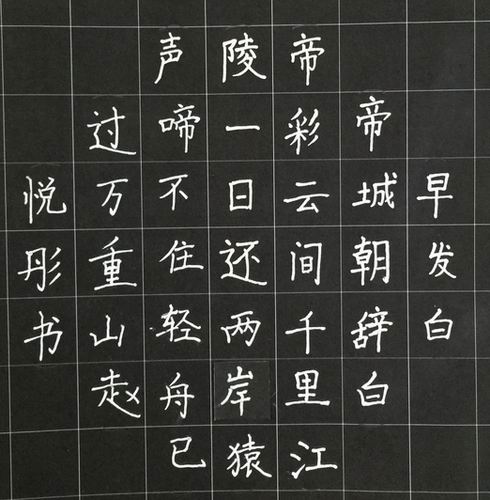 早发白
帝城朝辞白
帝彩云间千里江
陵一日还两岸猿
声啼不住轻舟已
过万重山赵
悦彤书